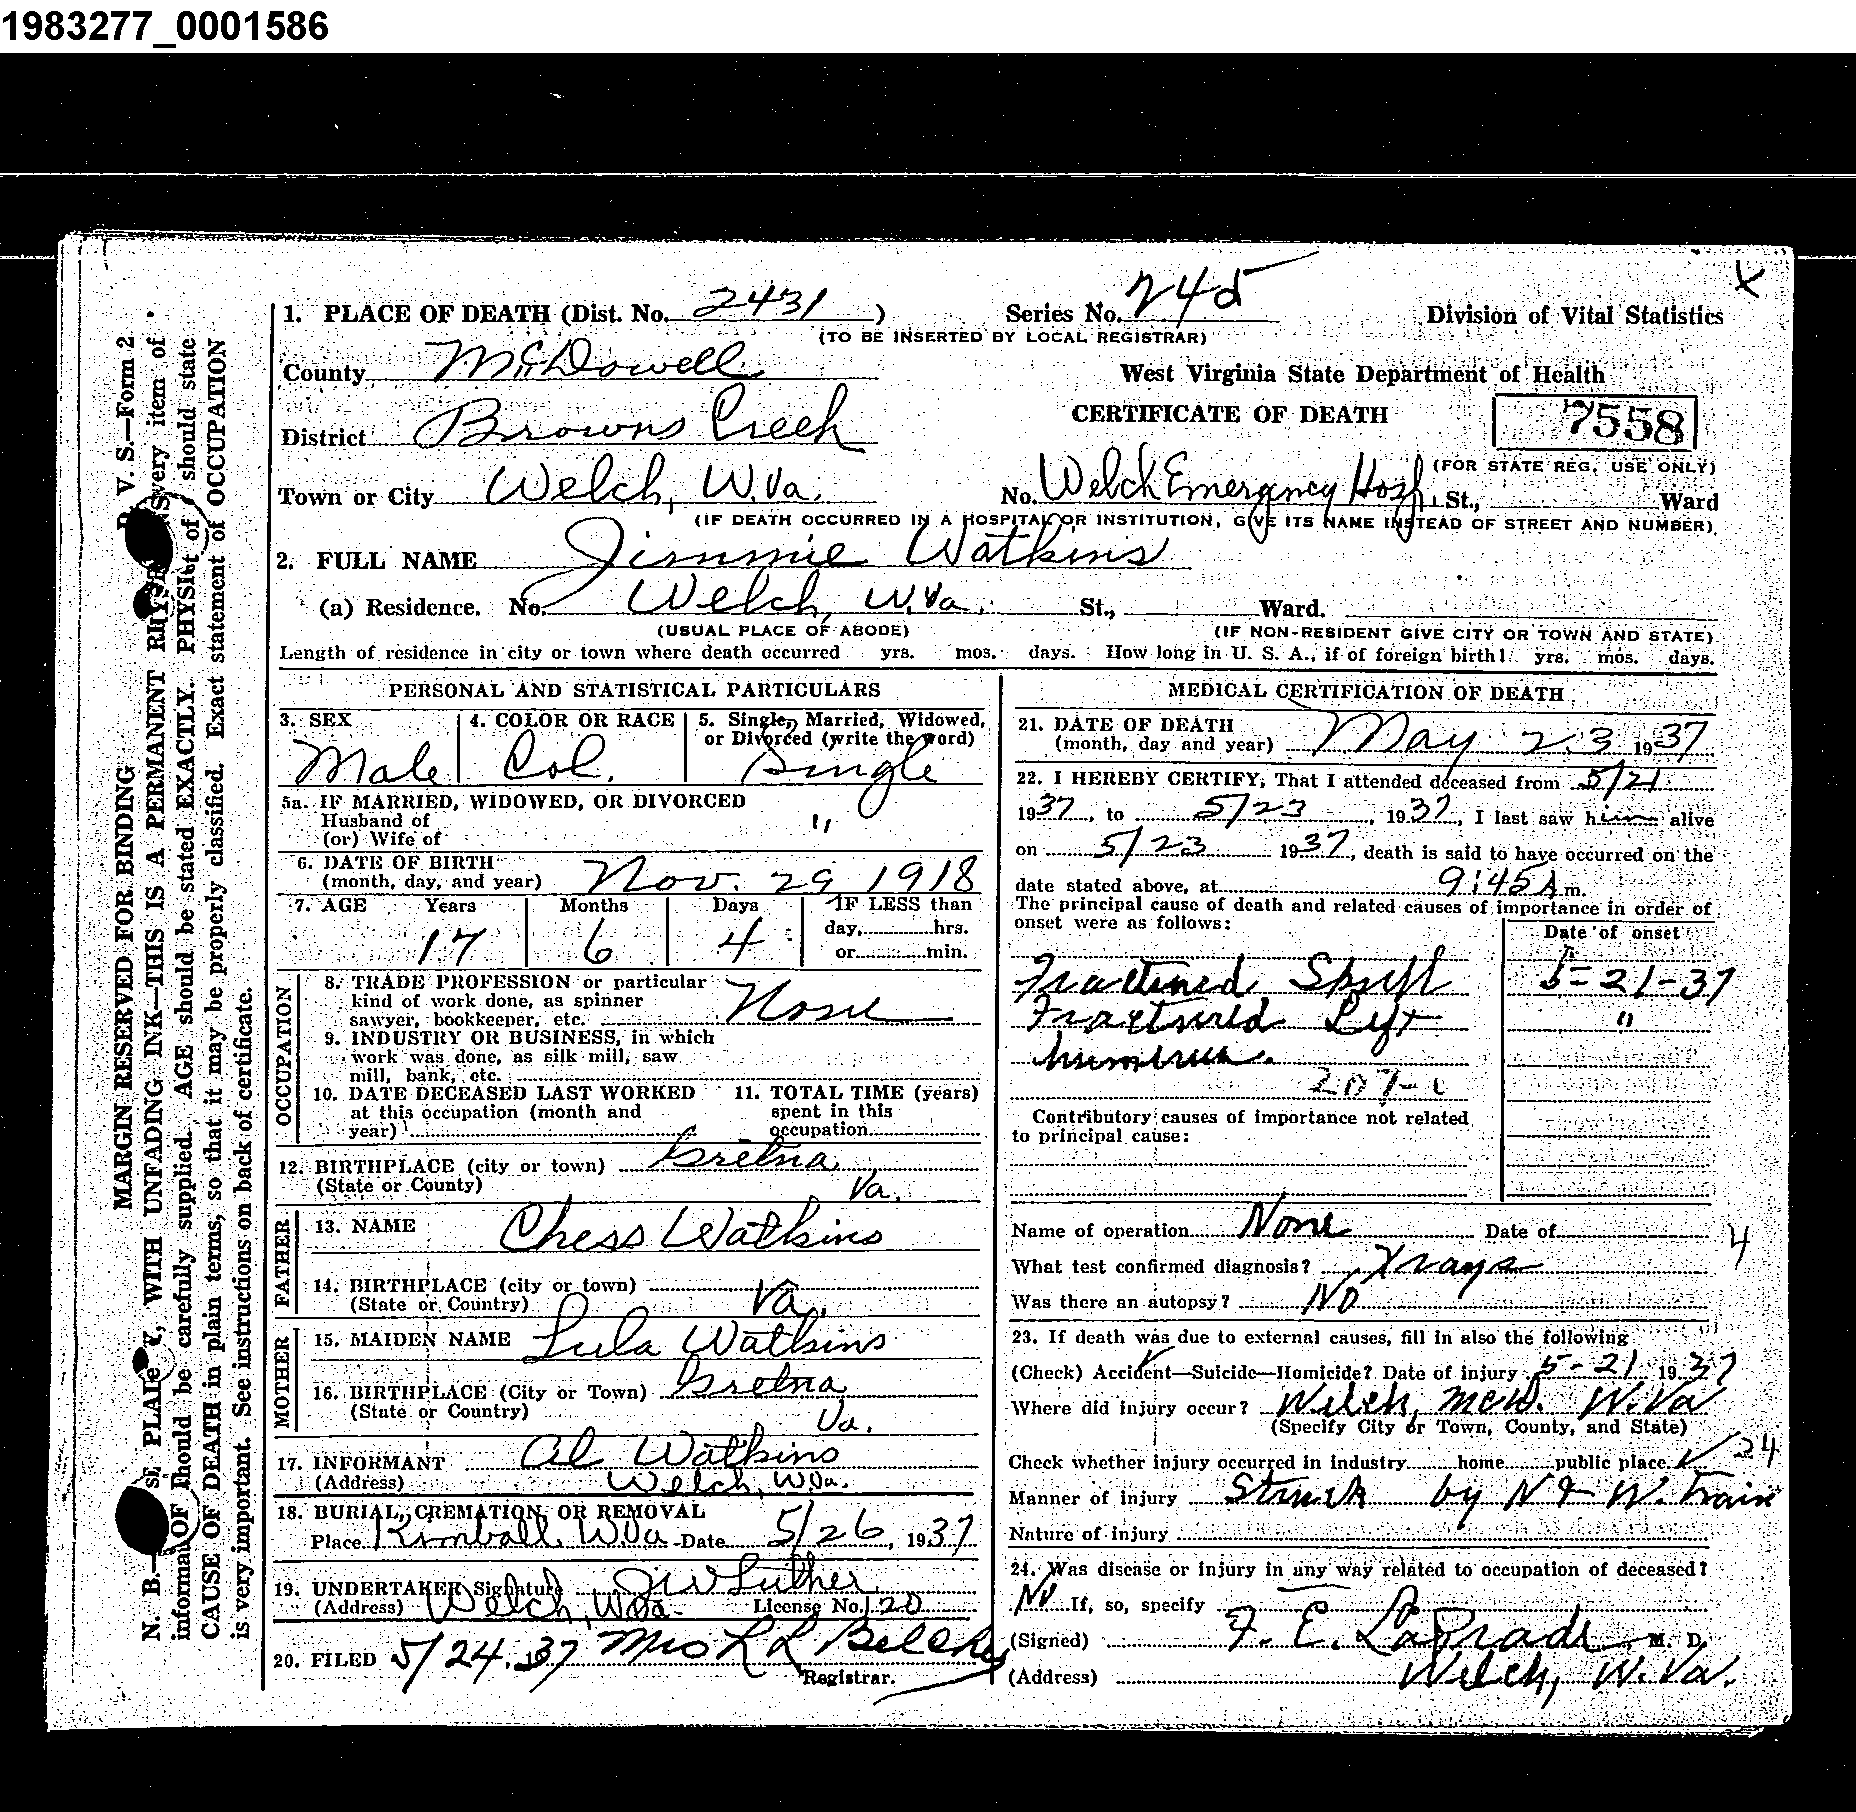 1983277_0001586
1. PLACE OF DEATH (Dist. No. 2431 )
Series No. 245
Division of Vital Statistics
(TO BE INSERTED BY LOCAL REGISTRAR)
County McDowell
West Virginia State Department of Health
CERTIFICATE OF DEATH
7558
District Browns Creek
(FOR STATE REG. USE ONLY)
Town or City Welch, W.Va. No. Welch Emergency Hosp. St., Ward
(IF DEATH OCCURRED IN A HOSPITAL OR INSTITUTION, GIVE ITS NAME INSTEAD OF STREET AND NUMBER)
2. FULL NAME Jimmie Watkins
(a) Residence. No. Welch, W.Va. St., Ward.
(USUAL PLACE OF ABODE) (IF NON-RESIDENT GIVE CITY OR TOWN AND STATE)
Length of residence in city or town where death occurred yrs. mos. days. How long in U. S. A., if of foreign birth? yrs. mos. days.
PERSONAL AND STATISTICAL PARTICULARS
3. SEX 4. COLOR OR RACE 5. Single, Married, Widowed,
or Divorced (write the word)
Male Col. Single
5a. IF MARRIED, WIDOWED, OR DIVORCED
Husband of "
(or) Wife of
6. DATE OF BIRTH
(month, day, and year) Nov. 29, 1918
7. AGE Years Months Days IF LESS than
day, hrs.
17 6 4 or min.
OCCUPATION
8. TRADE PROFESSION or particular
kind of work done, as spinner
sawyer, bookkeeper, etc. None
9. INDUSTRY OR BUSINESS, in which
work was done, as silk mill, saw
mill, bank, etc.
10. DATE DECEASED LAST WORKED
at this occupation (month and
year)
11. TOTAL TIME (years)
spent in this
occupation
12. BIRTHPLACE (city or town) Gretna
(State or County) Va.
FATHER
13. NAME Chess Watkins
14. BIRTHPLACE (city or town)
(State or Country) Va.
MOTHER
15. MAIDEN NAME Lula Watkins
16. BIRTHPLACE (City or Town) Gretna
(State or Country) Va.
17. INFORMANT Al Watkins
(Address) Welch, W.Va.
18. BURIAL, CREMATION, OR REMOVAL
Place Kimball W.Va Date 5/26, 1937
19. UNDERTAKER Signature J W Luther
(Address) Welch, W.Va. License No. 120
20. FILED 5/24, 1937 Mrs L L Belcher
Registrar.
MEDICAL CERTIFICATION OF DEATH
21. DATE OF DEATH
(month, day and year) May 23 1937
22. I HEREBY CERTIFY, That I attended deceased from 5/21
1937, to 5/23, 1937, I last saw him alive
on 5/23 1937, death is said to have occurred on the
date stated above, at 9:45 A m.
The principal cause of death and related causes of importance in order of
onset were as follows:
Date of onset
Fractured Skull 5-21-37
Fractured Left "
humerus.
Contributory causes of importance not related
to principal cause:
Name of operation None Date of
4
What test confirmed diagnosis? Xrays
Was there an autopsy? No
23. If death was due to external causes, fill in also the following
(Check) Accident—Suicide—Homicide? Date of injury 5-21 1937
Where did injury occur? Welch, McD. W.Va
(Specify City or Town, County, and State)
Check whether injury occurred in industry home public place ✓ 24
Manner of injury Struck by N & W. Train
Nature of injury
24. Was disease or injury in any way related to occupation of deceased?
No If, so, specify
(Signed) F. E. LaPrade M. D.
(Address) Welch, W.Va.
V. S.—Form 2
MARGIN RESERVED FOR BINDING
N. B.— PLAINLY, WITH UNFADING INK—THIS IS A PERMANENT Every item of
information should be carefully supplied. AGE should be stated EXACTLY. PHYSICIANS should state
CAUSE OF DEATH in plain terms, so that it may be properly classified. Exact statement of OCCUPATION
is very important. See instructions on back of certificate.